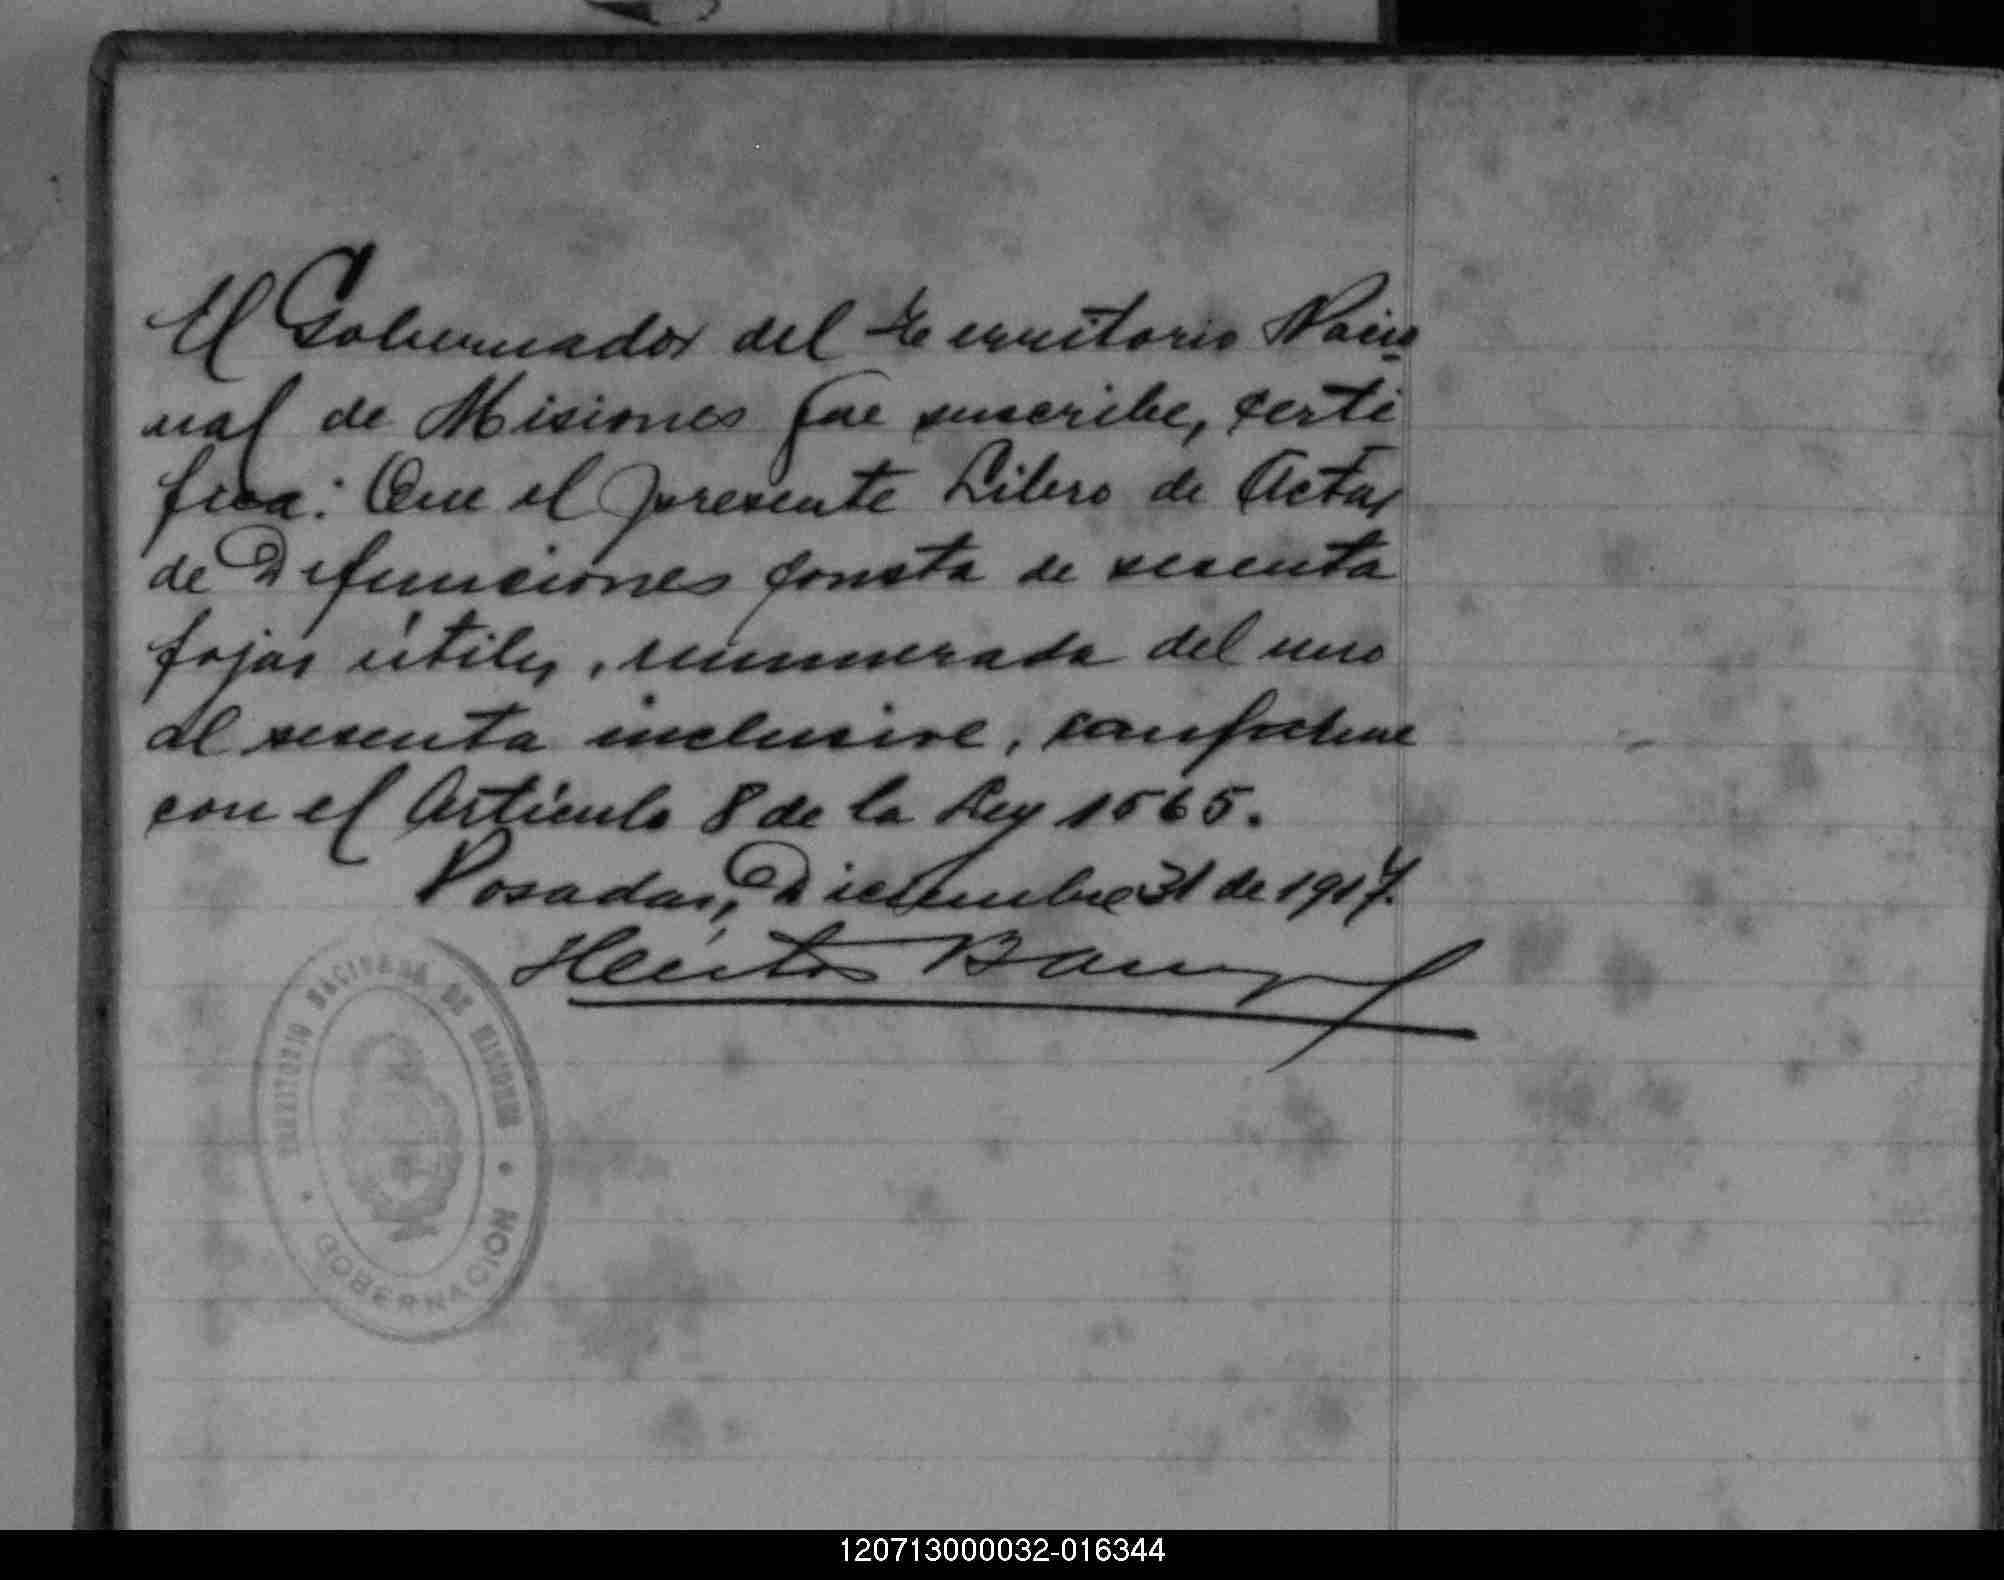 El Gobernador del Territorio Nacio
nal de Misiones que suscribe, certi
fica: Que el presente Libro de Actas
de Defunciones consta de sesenta
fojas útiles, numerada del uno
al sesenta inclusive, conforme
con el Artículo 8 de la Ley 1565.
Posadas, Diciembre 31 de 1917.
Héctor
TERRITORIO NACIONAL DE MISIONES
GOBERNACION
120713000032-016344